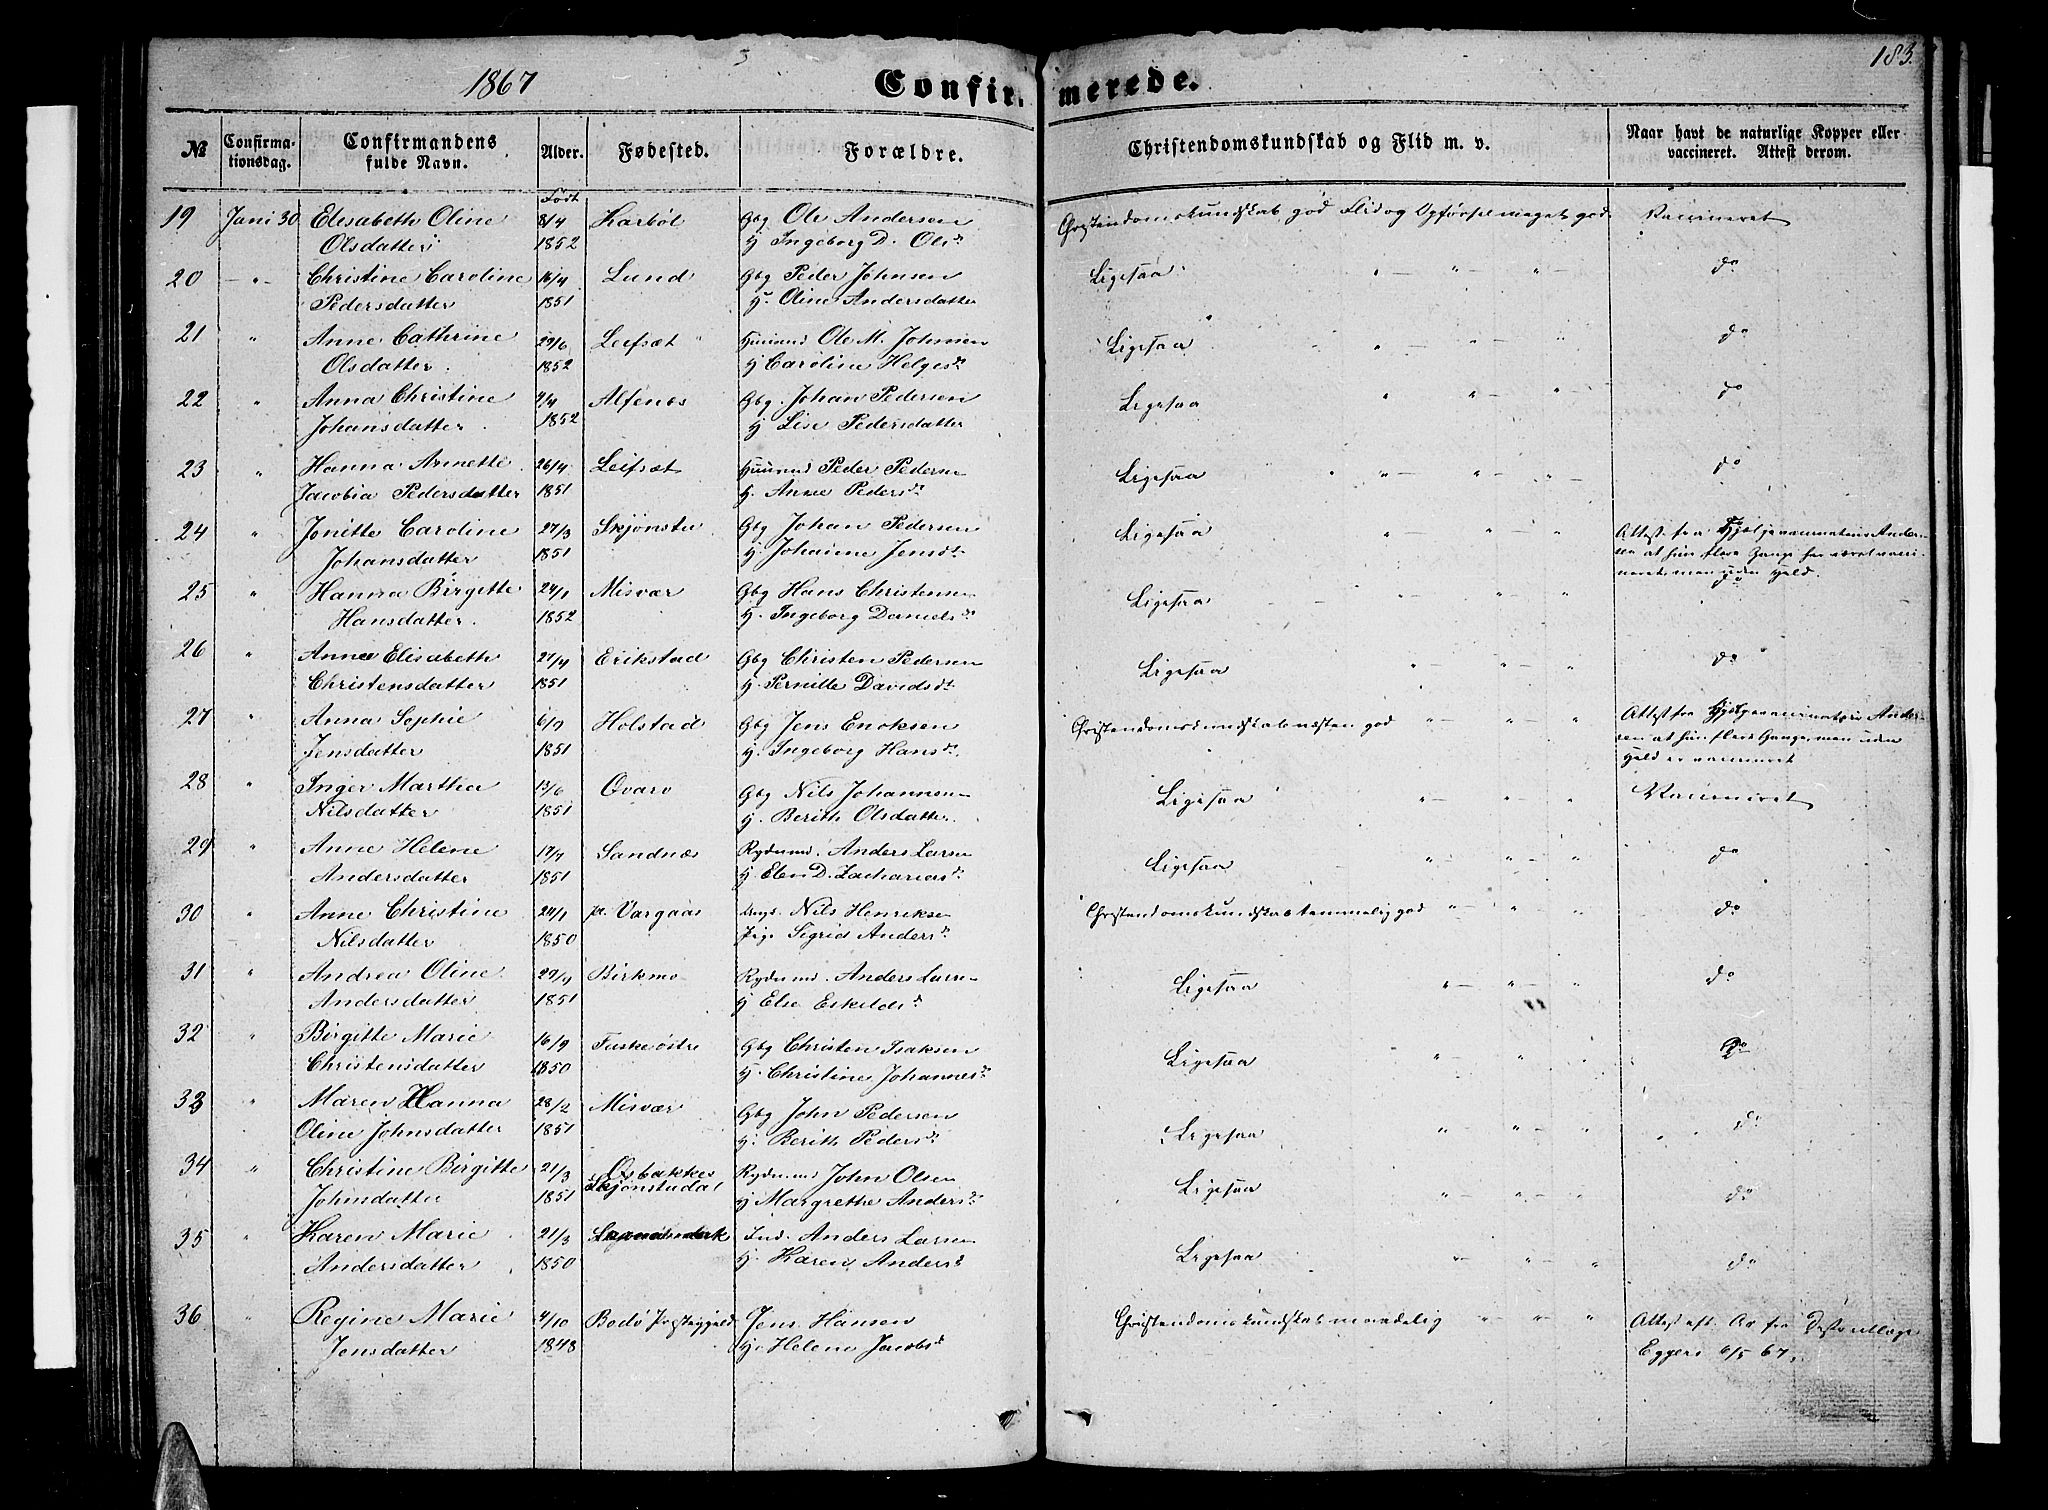 183.
1867 Confirmerede.
№ Confirmationsdag. Confirmandens fulde Navn. Alder. Fødested. Forældre. Christendomskundskab og Flid m. v. Naar havt de naturlige Kopper eller vaccineret. Attest derom.
Født
19 Juni 30 Elisabeth Oline 8/4 Karbøl Gbg Ole Andersen Christendomskundskab god Flid og Opførsel meget god Vaccineret
Olsdatter 1852 H Ingeborg D. Olsd.
20 — " — Christine Caroline 16/4 Lund Gbg Peder Johnsen Ligesaa " — " — " — do
Pedersdatter 1851 H. Oline Andersdatter
21 " Anne Cathrine 29/6 Leifsæt Huusmd Ole M. Johnsen Ligesaa " — " — " — do
Olsdatter 1852 H Caroline Helgesd.
22 " Anna Christine 9/4 Alfenæs Gbg. Johan Pedersen Ligesaa " " — " — do
Johansdatter 1852 H Lise Pedersdatter
23 " Hanna Annette 26/4 Leifsæt Huusmd Peder Pedersen Ligesaa " — " — " — do
Jacobia Pedersdatter 1851 H. Anne Pedersd.
24 " Jonette Caroline 27/3 Skjønstu Gbg Johan Pedersen Ligesaa " — " — " Attest fra Hjælpevaccinatør Ander-
Johansdatter 1851 H Johanne Jensdt. sen at hun flere Gange har været vacci-
neret, men uden Held.
25 " Hanna Birgitte 24/1 Misvær Gbg Hans Christensen Ligesaa " — " — " do
Hansdatter. 1852 H. Ingeborg Danielsd.
26 " Anne Elisabeth 27/4 Erikstad Gbg Christen Pedersen Ligesaa " — " — " do
Christensdatter 1851 H. Pernille Davidsdt.
27 " Anna Sophie 6/9 Holstad Gbg Jens Enoksen Christendomskundskab næsten god " — " — " Attest fra Hjælpevaccinatør Ander-
Jensdatter 1851 H. Ingeborg Hansd. sen at hun flere Gange, men uden
Held er vaccineret
28 " Inger Martha 13/6 Qvarv Gbg Nils Johannesen Ligesaa " — " — " Vaccineret
Nilsdatter 1851 H. Berith Olsdatter.
29 " Anne Helene 17/7 Sandnæs Rydnmd. Anders Larsen Ligesaa " — " — " do
Andersdatter 1851 H. Elen D. Zachariasd.
30 " Anne Christine 24/1 Vargaas Nils Henriksen Christendomskundskab temmelig god " — " " do
Nilsdatter 1850 Pige Sigrid Andersd.
31 " Andrea Oline 29/9 Birkmo Rydnmd. Anders Larsen Ligesaa " — " — " do
Andersdatter 1851 H Else Eskildsd.
32 " Birgitte Marie 16/9 Fuske østre Gbg Christen Isaksen Ligesaa " — " " do
Christensdatter 1850 H. Christine Johannesd.
33 " Maren Hanna 28/2 Misvær Gbg John Pedersen Ligesaa " " — " do
Oline Johnsdatter 1851 H. Berith Pedersd.
34 " Christine Birgitte 21/3 Osbakken Rydnmd John Olsen Ligesaa " — " — " do
Johnsdatter 1851 Skjønstudal H Margrethe Andersd.
35 " Karen Marie 21/3 Ind. Anders Larsen Ligesaa " — " — " do
Andersdatter 1850 H. Karen Andersd.
36 " Regine Marie 4/10 Bodø Præstegjeld Jens Hansen Christendomskundskab maadelig " — " — " Attest eft. Ar fra Distriktlæge
Jensdatter 1848 H. Helene Jacobsd. Eggers 6/5 67.